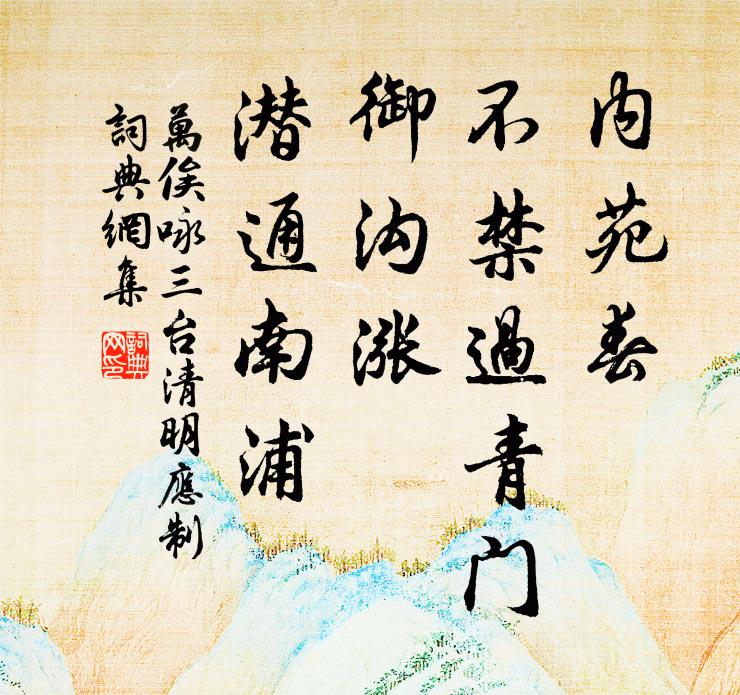 内苑春
不禁過青门
御沟涨
潜通南浦
萬俟咏三台清明應制
詞典網集
詞典網印